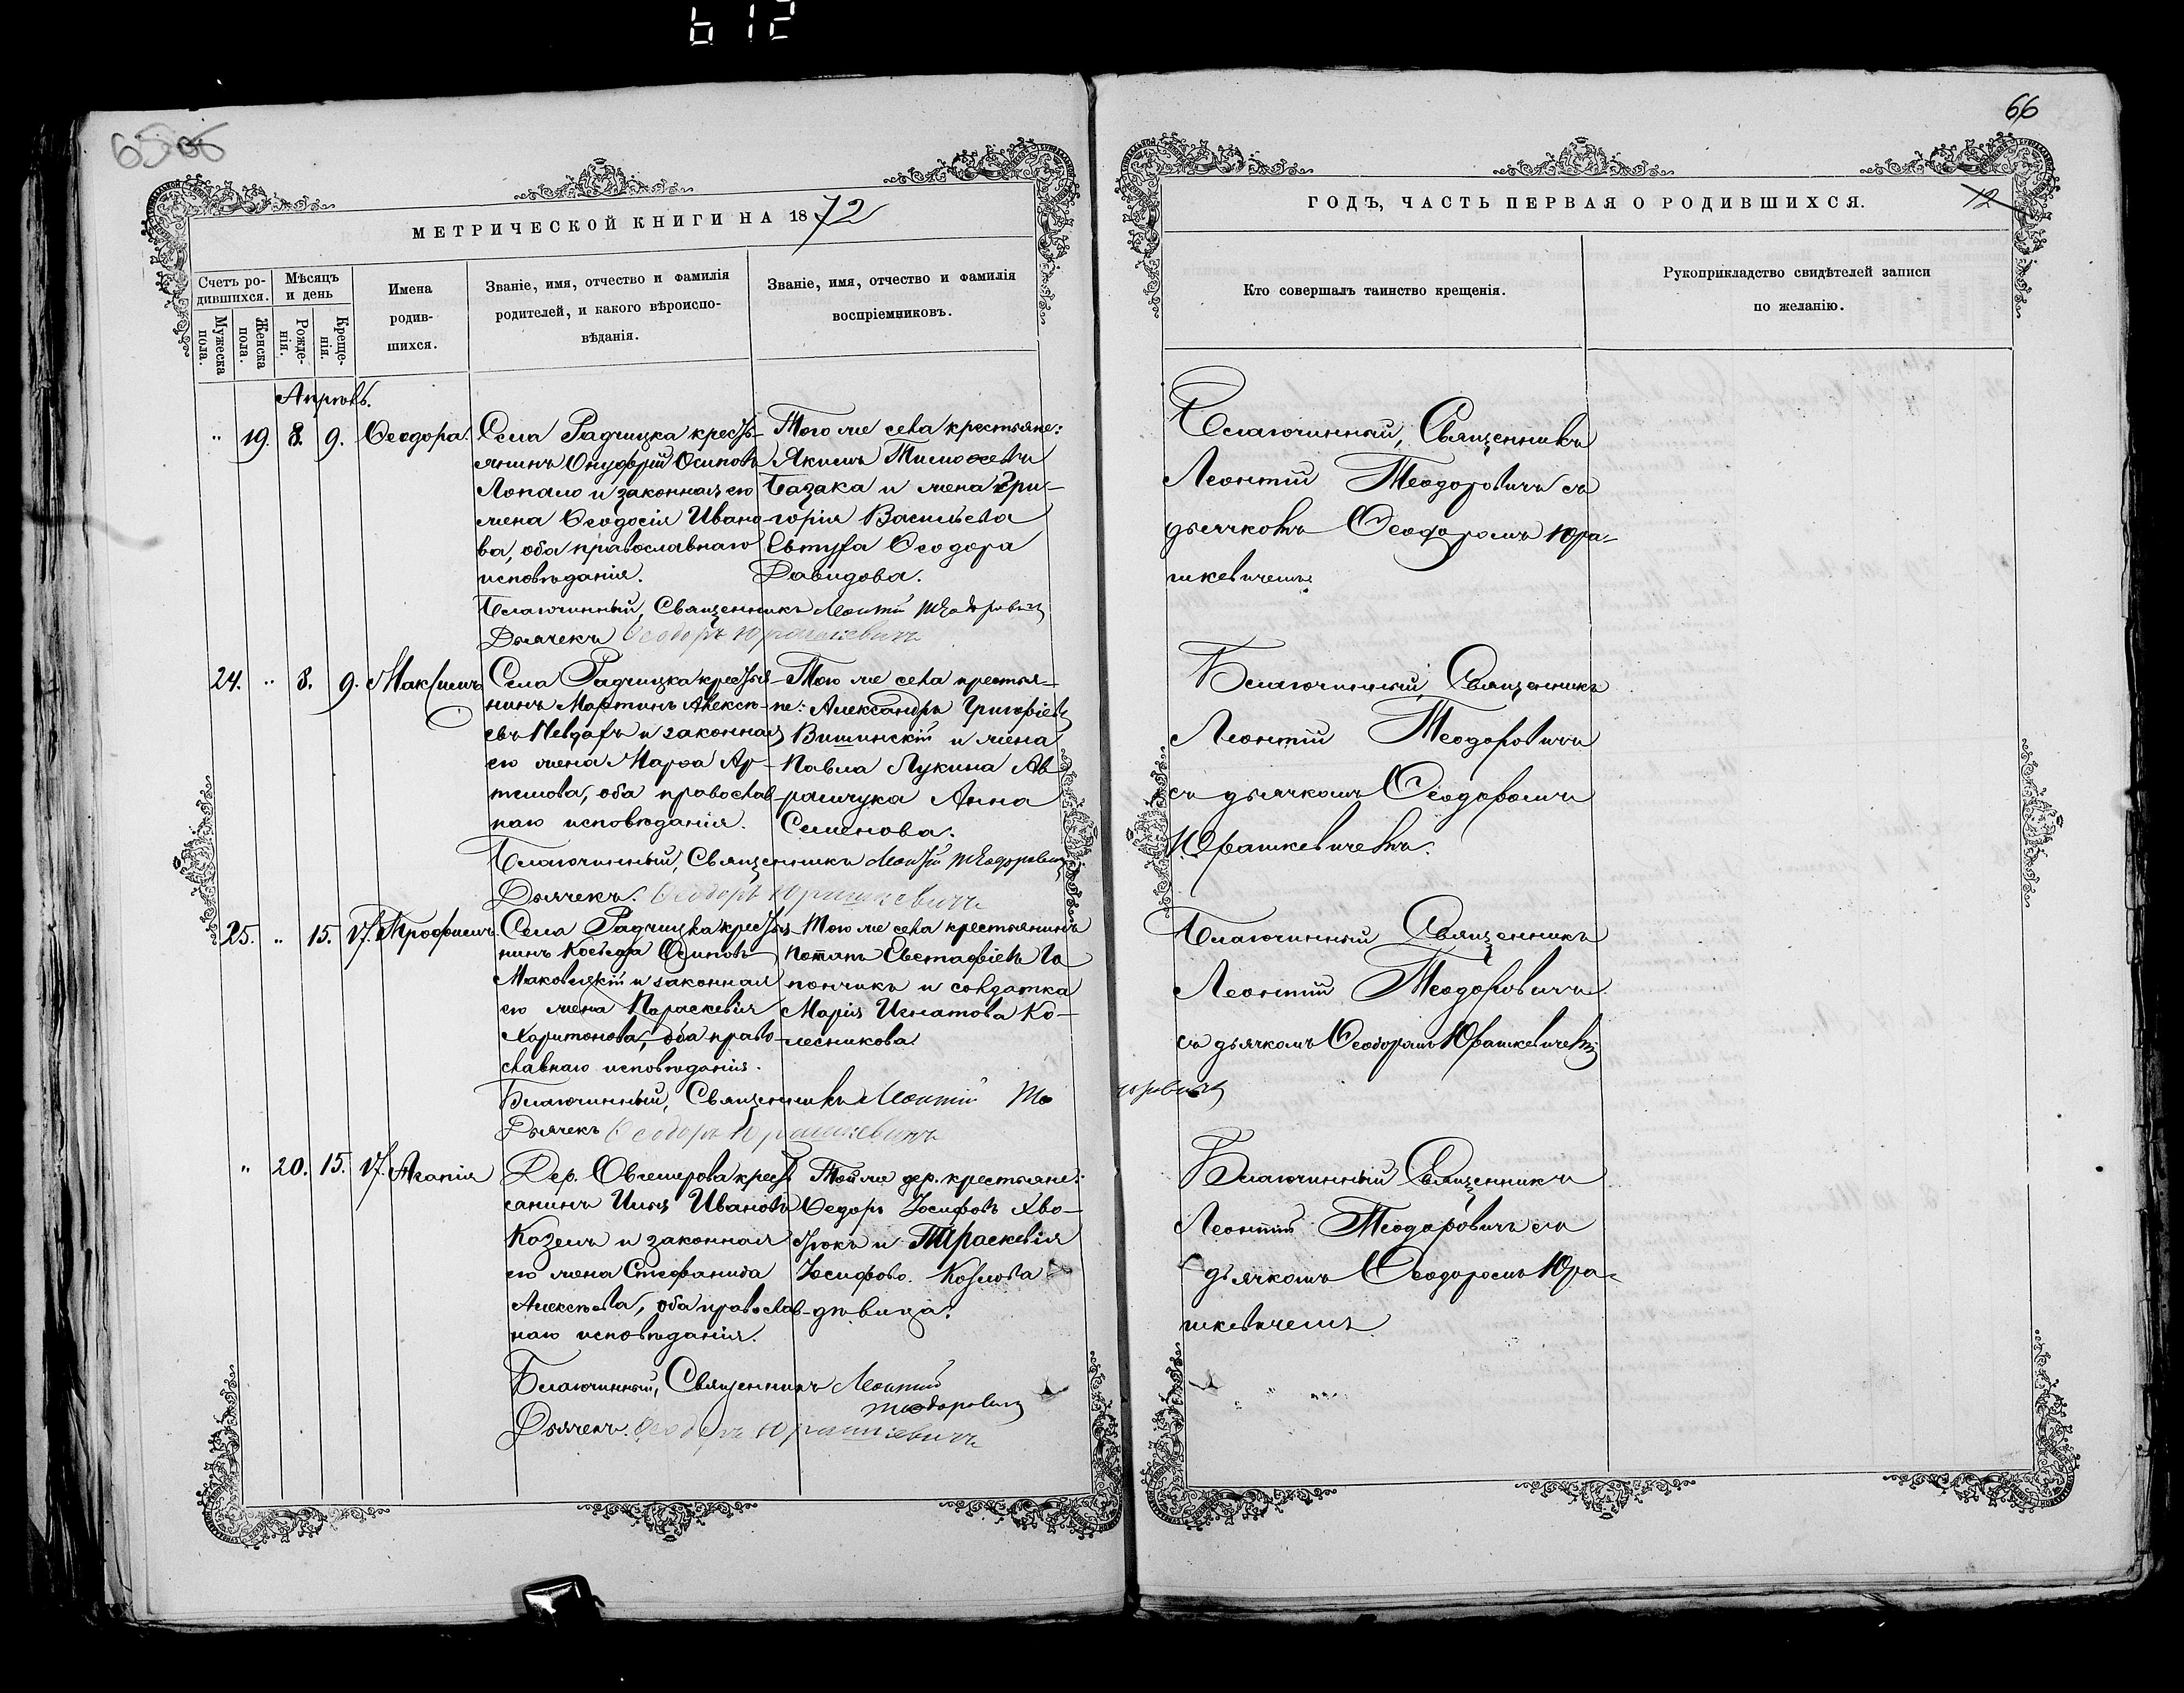 612
66
МЕТРИЧЕСКОЙ КНИГИ НА 1872
Счетъ ро-
дившихся.
Мужеска
пола.
Женска
пола.
Мѣсяцъ
и день
Рожде-
нія.
Креще-
нія.
Имена
родив-
шихся.
Званіе, имя, отчество и фамилія
родителей, и какого вѣроиспо-
вѣданія.
Званіе, имя, отчество и фамилія
воспріемниковъ.
Апрѣль.
" 19. 8. 9. Ѳеодора.
Села Радчицка кресть-
янинъ Онуфрій Осиповъ
Лопало и законная его
жена Ѳеодосія Ивано-
ва, оба православнаго
исповѣданія.
Того же села крестьяне:
Якимъ Тимоѳеевъ
Базака и жена Гри-
горія Васильева
Евтуха Ѳеодора
Давидова.
Благочинный, Священникъ Леонтій Теодоровичъ
Дьячекъ Ѳеодоръ Юрашкевичъ
24. " 8. 9. Максимъ
Села Радчицка крестья-
нинъ Мартинъ Алексѣ-
евъ Невдахъ и законная
его жена Марѳа Ар-
темова, оба православ-
наго исповѣданія.
Того же села крестья-
не: Александръ Григоріевъ
Вишинскій и жена
Павла Лукина Ав
рамчука Анна
Семенова.
Благочинный, Священникъ Леонтій Теодоровичъ
Дьячекъ. Ѳеодоръ Юрашкевичъ
25. " 15. 17. Трофимъ.
Села Радчицка крестья-
нинъ Косьма Осиповъ
Маковецкій и законная
его жена Параскевія
Харитонова, оба право-
славнаго исповѣданія.
Того же села крестьянинъ
Потапъ Евстафіевъ Га
пончикъ и солдатка
Марія Игнатова Ко-
лесникова.
Благочинный, Священникъ Леонтій Теодоровичъ
Дьячекъ Ѳеодоръ Юрашкевичъ
" 20. 15. 17. Агапія
Дер. Овсемирова крест
санинъ Илья Ивановъ
Козелъ и законная
его жена Стефанида
Алексѣева, оба православ-
наго исповѣданія.
Той же дер. крестьяне:
Ѳедоръ Іосифовъ Хво-
стюкъ и Параскевія
Іосифова. Козлова
дѣвица.
Благочинный, Священникъ Леонтій
Теодоровичъ
Дьячекъ. Ѳеодоръ Юрашкевичъ
ГОДЪ, ЧАСТЬ ПЕРВАЯ О РОДИВШИХСЯ.
72
Кто совершалъ таинство крещенія.
Рукоприкладство свидѣтелей записи
по желанію.
Благочинный, Священникъ
Леонтій Теодоровичъ съ
дьячкомъ Ѳеодоромъ Юра-
шкевичемъ
Благочинный, Священникъ
Леонтій Теодоровичъ
съ дьячкомъ Ѳеодоромъ
Юрашкевичемъ.
Благочинный Священникъ
Леонтій Теодоровичъ
съ дьячкомъ Ѳеодоромъ Юрашкевичемъ
Благочинный Священникъ
Леонтій Теодоровичъ съ
дьячкомъ Ѳеодоромъ Юра-
шкевичемъ